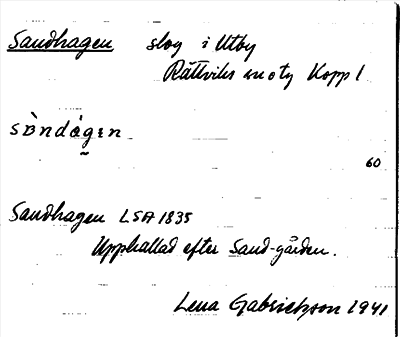 Sandhagen slog i Utby
Rättviks sn o tg Kopp l
sàndágen
60
Sandhagen LSA 1835
Upphallad efter Sand-gården.
Lena Gabrielsson 1941